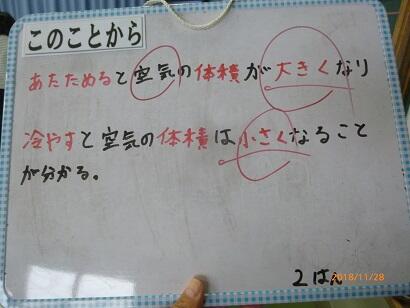 このことから
あたためると空気の体積が大きくなり
冷やすと空気の体積は小さくなること
が分かる。
2はん
2018/11/28